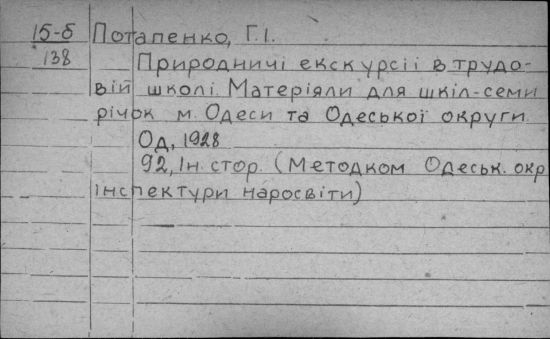 15-б Потапенко, Г.І.
138 Природничі екскурсіі в трудо-
вій школі. Матеріяли для шкіл-семи
річок м. Одеси та Одеської округи.
Од, 1928
92, Ін. стор. (Методком Одеськ. окр
інспектури наросвіти)